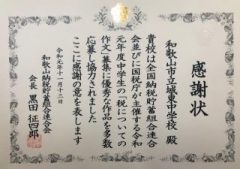 感謝状
和歌山市立城東中学校 殿
貴校は全国納税貯蓄組合連合
会並びに国税庁が主催する令和
元年度中学生の「税についての
作文」募集に優秀な作品を多数
応募し協力されました
ここに感謝の意を表します
令和元年十一月十二日
和歌山納税貯蓄組合連合会
会長 黒田 征四郎